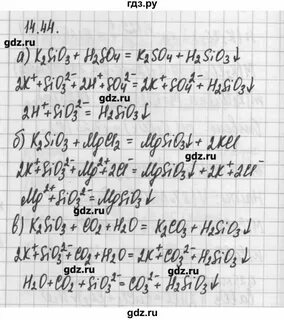 гдз.ру
14.44.
а) K₂SiO₃ + H₂SO₄ = K₂SO₄ + H₂SiO₃↓
2K⁺ + SiO₃²⁻ + 2H⁺ + SO₄²⁻ = 2K⁺ + SO₄²⁻ + H₂SiO₃↓
2H⁺ + SiO₃²⁻ = H₂SiO₃↓
б) K₂SiO₃ + MgCl₂ = MgSiO₃↓ + 2KCl
2K⁺ + SiO₃²⁻ + Mg²⁺ + 2Cl⁻ = MgSiO₃↓ + 2K⁺ + 2Cl⁻
Mg²⁺ + SiO₃²⁻ = MgSiO₃↓
в) K₂SiO₃ + CO₂ + H₂O = K₂CO₃ + H₂SiO₃↓
2K⁺ + SiO₃²⁻ + CO₂ + H₂O = 2K⁺ + CO₃²⁻ + H₂SiO₃↓
H₂O + CO₂ + SiO₃²⁻ = CO₃²⁻ + H₂SiO₃↓